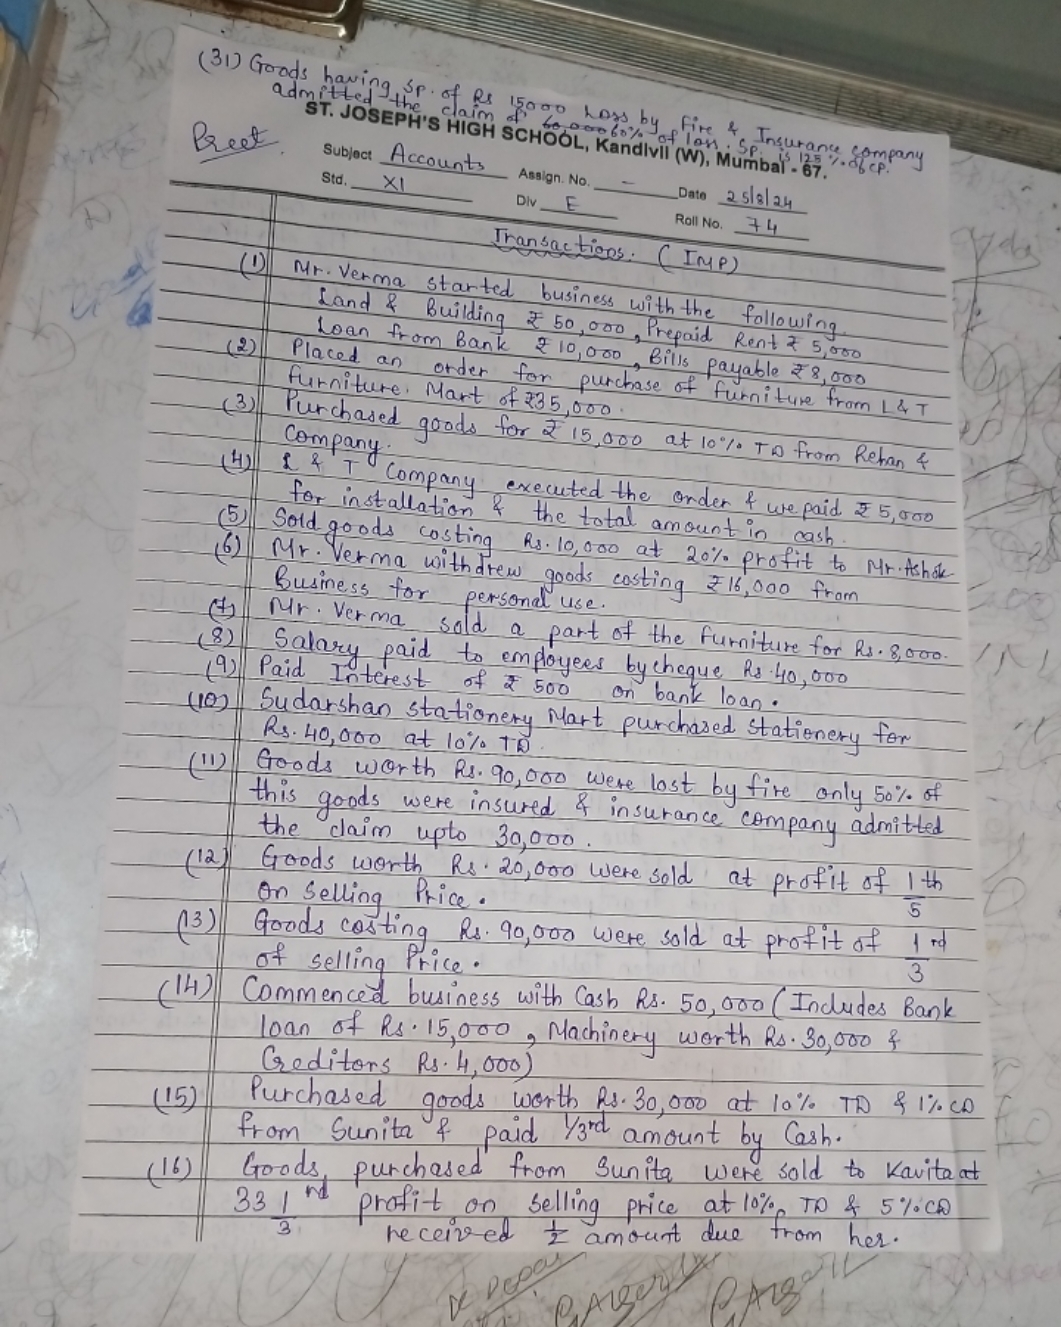 (31) Goods having Sp. of Rs 15000 Loss by fire & Insurance company
admitted the claim of 60% of loss. SP. is 125% of CP.
ST. JOSEPH'S HIGH SCHOOL, Kandivli (W), Mumbai - 67.
Preet.
Subject Accounts Assign. No. - Date 25/8/24
Std. XI Div E Roll No. 74
Transactions. (IMP)
(1) Mr. Verma started business with the following.
Land & Building ₹ 50,000, Prepaid Rent ₹ 5,000
Loan from Bank ₹ 10,000, Bills payable ₹ 8,000
(2) Placed an order for purchase of furniture from L & T
furniture. Mart of ₹35,000.
(3) Purchased goods for ₹ 15,000 at 10% TD from Rehan &
Company.
(4) L & T Company executed the order & we paid ₹ 5,000
for installation & the total amount in cash.
(5) Sold goods costing Rs. 10,000 at 20% profit to Mr. Ashok
(6) Mr. Verma withdrew goods costing ₹ 16,000 from
Business for personal use.
(7) Mr. Verma sold a part of the furniture for Rs. 8,000.
(8) Salary paid to employees by cheque Rs. 40,000
(9) Paid Interest of ₹ 500 on bank loan.
(10) Sudarshan Stationery Mart purchased stationery for
Rs. 40,000 at 10% TD.
(11) Goods worth Rs. 90,000 were lost by fire only 50% of
this goods were insured & insurance company admitted
the claim upto 30,000.
(12) Goods worth Rs. 20,000 were sold at profit of 1/5 th
on Selling Price.
(13) Goods costing Rs. 90,000 were sold at profit of 1/3 rd
of selling Price.
(14) Commenced business with Cash Rs. 50,000 (Includes Bank
loan of Rs. 15,000, Machinery worth Rs. 30,000 &
Creditors Rs. 4,000)
(15) Purchased goods worth Rs. 30,000 at 10% TD & 1% CD
from Sunita & paid 1/3rd amount by Cash.
(16) Goods, purchased from Sunita were sold to Kavita at
33 1/3 rd profit on selling price at 10%, TD & 5% CD
received 1/2 amount due from her.